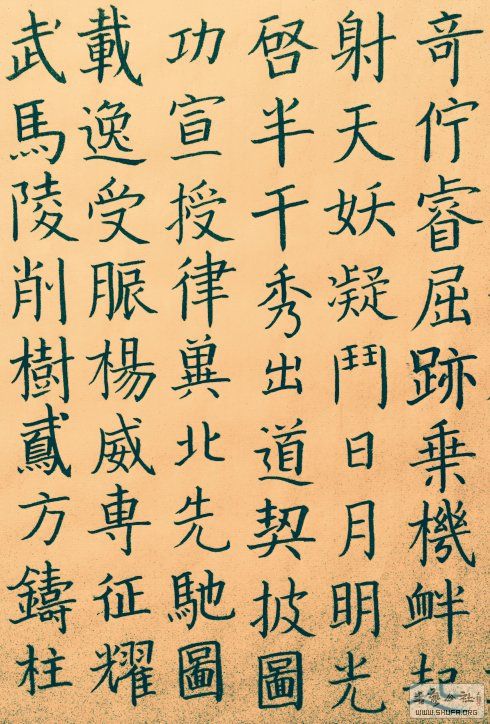 奇佇睿屈跡乗機衅起
射天妖凝鬥日月明光
啓半千秀出道契披圖
功宣授律冀北先馳圖
載逸受脤楊威専征耀
武馬陵削樹方鑄柱
WWW.SHUFA.ORG